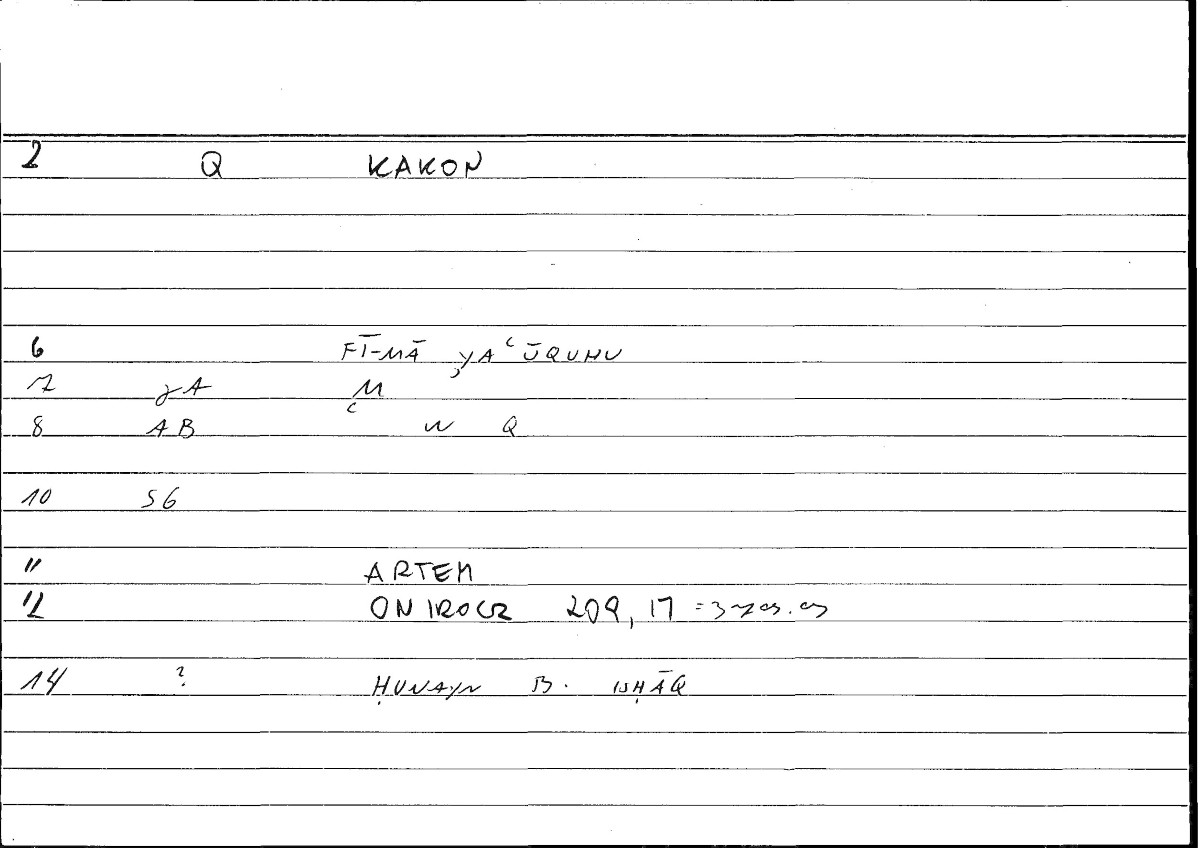 2 Q KAKON
6 FĪ-MĀ YAʿŪQUHU
7 M
8 AB W Q
10 S6
11 ARTEM
12 ONIROCR 209, 17
14 ? ḤUNAYN B. ISḤĀQ